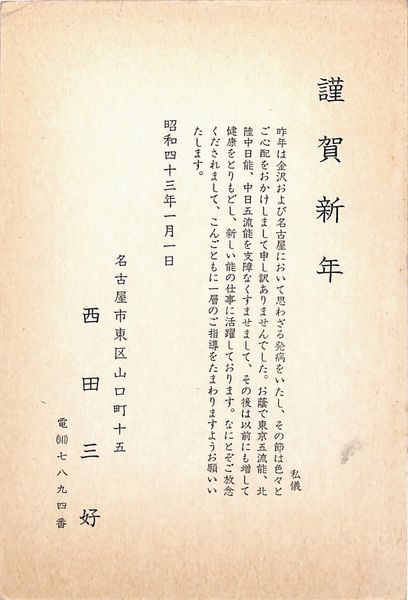 謹賀新年
私儀
昨年は金沢および名古屋において思わざる発病をいたし、その節は色々と
ご心配をおかけしまして申し訳ありませんでした。お蔭で東京五流能、北
陸中日能、中日五流能を支障なくすませまして、その後は以前にも増して
健康をとりもどし、新しい能の仕事に活躍しております。なにとぞご放念
くだされまして、こんごともに一層のご指導をたまわりますようお願いい
たします。
昭和四十三年一月一日
名古屋市東区山口町十五
西田三好
電 七八九四番